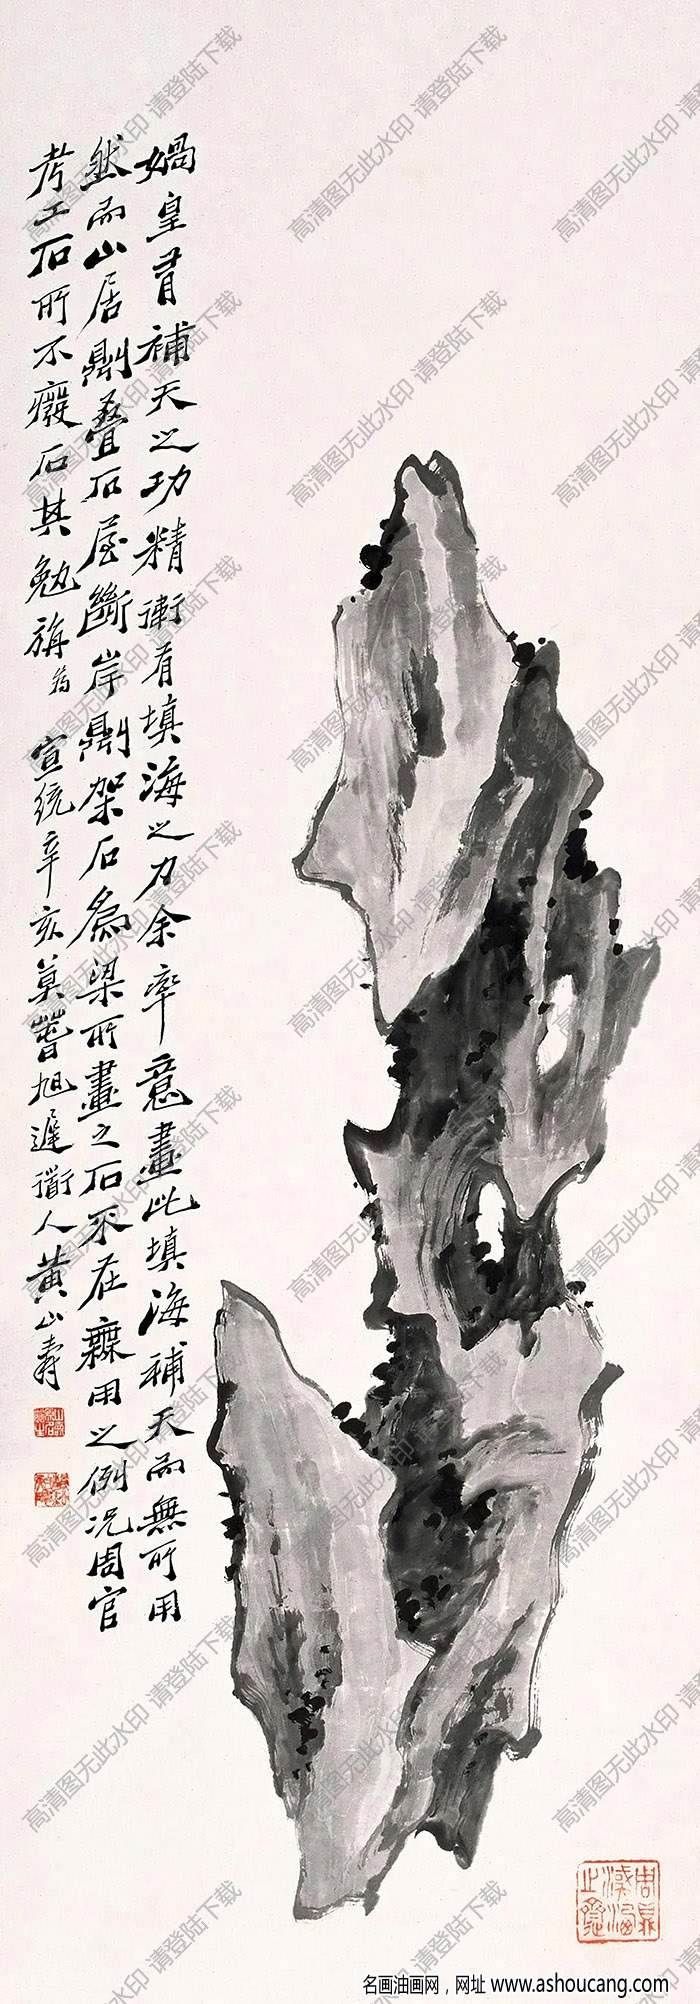 媧皇有補天之功精衛有填海之力余率意畫此填海補天而無所用
然而山居則叠石為屋斷岸則架石為梁所畫之石不在無用之例況周官
考工石所不廢石其勉旃 宣統辛亥莫
旭遲道人黄山壽
名画油画网，网址 www.ashoucang.com
高清图无此水印 请登陆下载